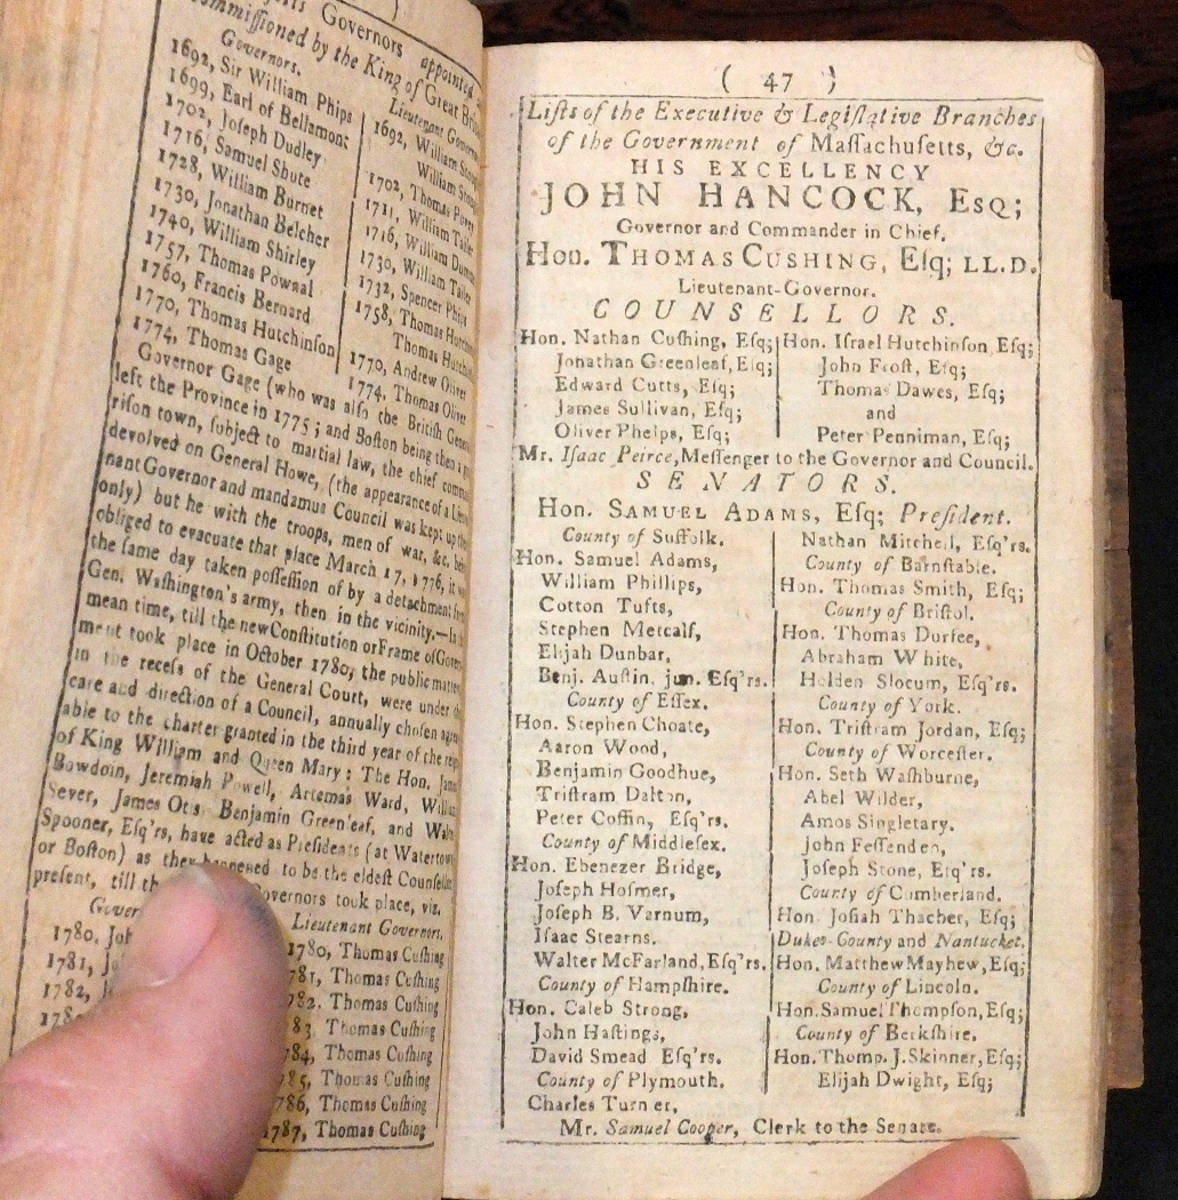 Governors appointed
commiſſioned by the King of Great
Governors.
1692, Sir William Phips
1699, Earl of Bellamont
1702, Joſeph Dudley
1716, Samuel Shute
1728, William Burnet
1730, Jonathan Belcher
1740, William Shirley
1757, Thomas Pownal
1760, Francis Bernard
1770, Thomas Hutchinſon
1774, Thomas Gage
Lieutenant
1692, William
William
1702, Thomas
1711, William
1716, William
1730, William
1732, Spencer
1758, Thomas
Thomas
1770, Andrew Oliver
1774, Thomas Oliver
Governor Gage (who was alſo the Britiſh
left the Province in 1775; and Boſton being then a
riſon town, ſubject to martial law, the chief
devolved on General Howe, (the appearance of a
nant Governor and mandamus Council was kept up
only) but he with the troops, men of war, &c.
obliged to evacuate that place March 17, 1776, it
the ſame day taken poſſeſſion of by a detachment
Gen. Waſhington's army, then in the vicinity.—
mean time, till the new Conſtitution or Frame of
ment took place in October 1780, the public
in the receſs of the General Court, were under
care and direction of a Council, annually choſen
able to the charter granted in the third year of the
of King William and Queen Mary: The Hon.
Bowdoin, Jeremiah Powell, Artemas Ward,
Sever, James Otis Benjamin Greenleaf, and
Spooner, Eſq'rs, have acted as Preſidents (at
or Boſton) as they happened to be the eldeſt
preſent, till overnors took place, viz.
Lieutenant Governors.
1780, 1780, Thomas Cuſhing
1781, 781, Thomas Cuſhing
1782, 782. Thomas Cuſhing
83. Thomas Cuſhing
784, Thomas Cuſhing
785, Thomas Cuſhing
786, Thomas Cuſhing
1787, Thomas Cuſhing
( 47 )
Liſts of the Executive & Legiſlative Branches
of the Government of Maſſachuſetts, &c.
HIS EXCELLENCY
JOHN HANCOCK, Esq;
Governor and Commander in Chief.
Hon. Thomas Cushing, Eſq; LL.D.
Lieutenant-Governor.
COUNSELLORS.
Hon. Nathan Cuſhing, Eſq;
Jonathan Greenleaf, Eſq;
Edward Cutts, Eſq;
James Sullivan, Eſq;
Oliver Phelps, Eſq;
Hon. Iſrael Hutchinſon Eſq;
John Froſt, Eſq;
Thomas Dawes, Eſq;
and
Peter Penniman, Eſq;
Mr. Iſaac Peirce, Meſſenger to the Governor and Council.
SENATORS.
Hon. Samuel Adams, Eſq; Preſident.
County of Suffolk.
Hon. Samuel Adams,
William Phillips,
Cotton Tufts,
Stephen Metcalf,
Elijah Dunbar,
Benj. Auſtin. jun. Eſq'rs.
County of Eſſex.
Hon. Stephen Choate,
Aaron Wood,
Benjamin Goodhue,
Triſtram Dalton,
Peter Coffin, Eſq'rs.
County of Middleſex.
Hon. Ebenezer Bridge,
Joſeph Hoſmer,
Joſeph B. Varnum,
Iſaac Stearns.
Walter McFarland, Eſq'rs.
County of Hampſhire.
Hon. Caleb Strong,
John Haſtings,
David Smead Eſq'rs.
County of Plymouth.
Charles Turner,
Nathan Mitchell, Eſq'rs.
County of Barnſtable.
Hon. Thomas Smith, Eſq;
County of Briſtol.
Hon. Thomas Durfee,
Abraham White,
Holden Slocum, Eſq'rs.
County of York.
Hon. Triſtram Jordan, Eſq;
County of Worceſter.
Hon. Seth Waſhburne,
Abel Wilder,
Amos Singletary.
John Feſſenden,
Joſeph Stone, Eſq'rs.
County of Cumberland.
Hon. Joſiah Thacher, Eſq;
Dukes-County and Nantucket.
Hon. Matthew Mayhew, Eſq;
County of Lincoln.
Hon. Samuel Thompſon, Eſq;
County of Berkſhire.
Hon. Thomp. J. Skinner, Eſq;
Elijah Dwight, Eſq;
Mr. Samuel Cooper, Clerk to the Senate.